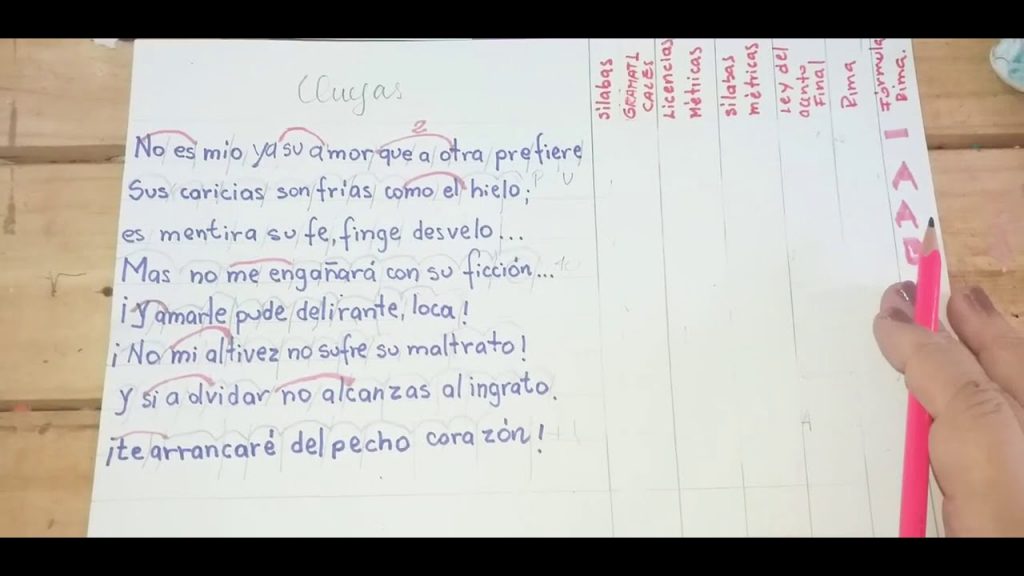 Quejas
sílabas GRAMATICALES
Licencias Métricas
sílabas métricas
Ley del acento Final
Rima
Fórmula Rima.
2
No es mio ya su amor que a otra prefiere I
Sus caricias son frías como el hielo; P V A
es mentira su fe, finge desvelo... A
Mas no me engañará con su ficción... 10 B
¡Y amarle pude delirante, loca!
¡No mi altivez no sufre su maltrato!
y si a olvidar no alcanzas al ingrato.
¡te arrancaré del pecho corazón! +1